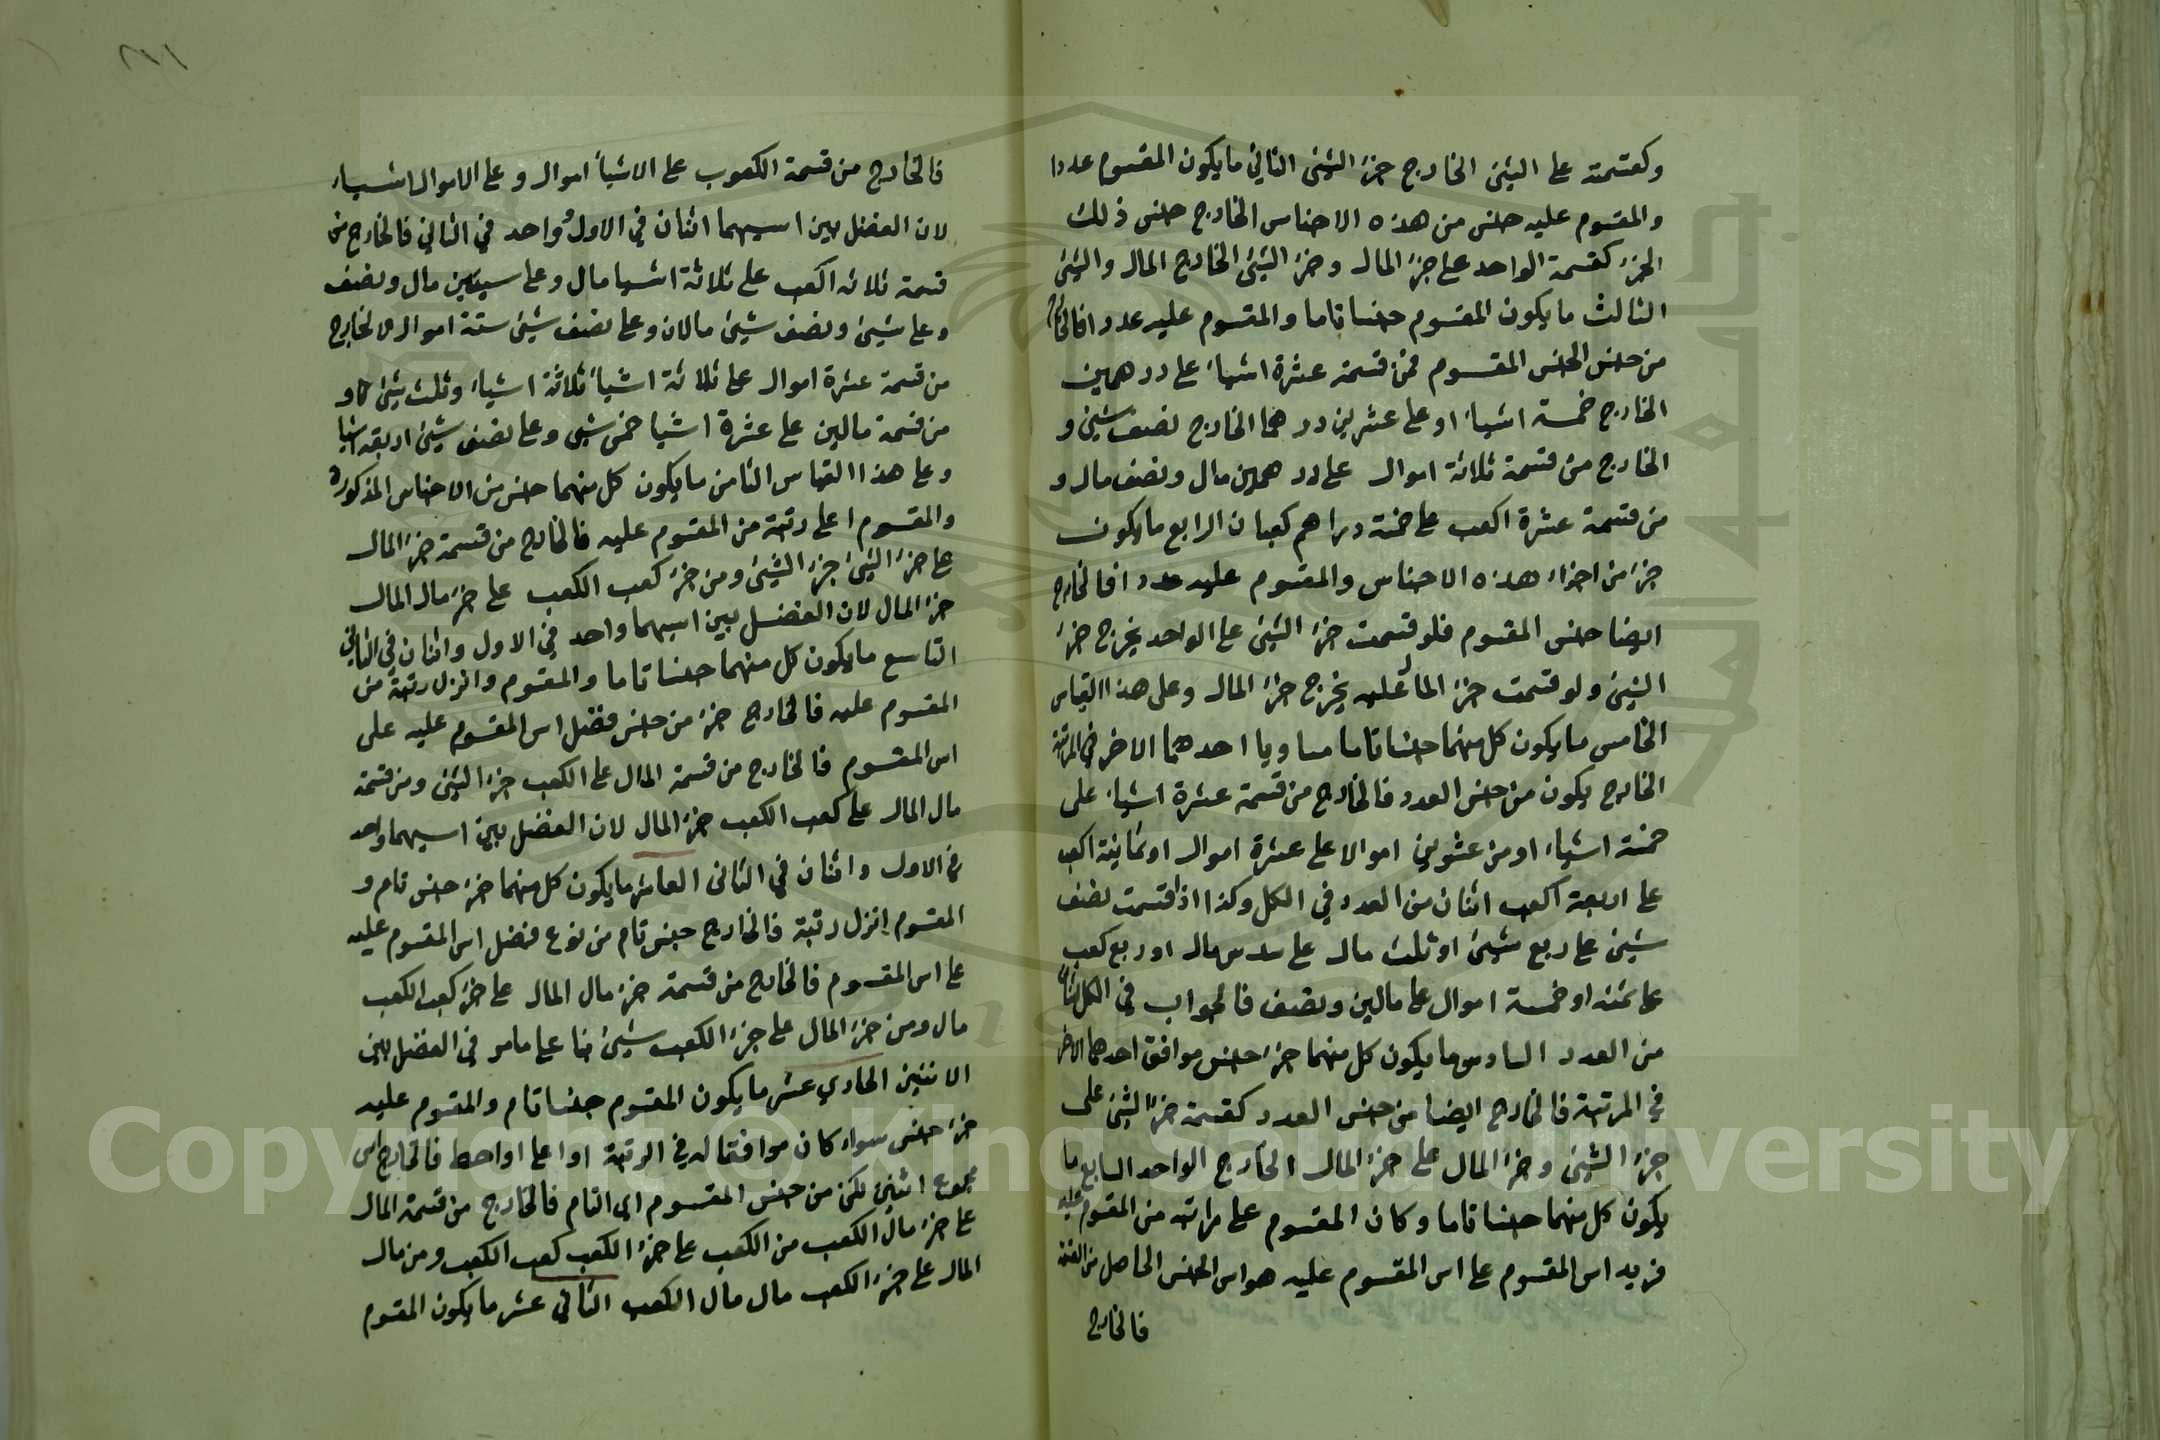 وكقسمته على الشئ الخارج جزء الشئ الثاني ما يكون المقسوم عددا
والمقسوم عليه جنس من هذه الاجناس الخارج جنس ذلك
الجزء كقسمة الواحد على جزء المال وجزء الشئ الخارج المال والشئ
الثالث ما يكون المقسوم جنسا تاما والمقسوم عليه عددا فالخارج
من جنس الجنس المقسوم فمن قسمة عشرة اشياء على درهمين
الخارج خمسة اشياء او على عشرين درهما الخارج نصف شئ و
الخارج من قسمة ثلاثة اموال على درهمين مال ونصف مال و
من قسمة عشرة اكعب على خمسة دراهم كعبان الرابع ما يكون
جزء من اجزاء هذه الاجناس والمقسوم عليه عددا فالخارج
ايضا جنس المقسوم فلو قسمت جزء الشئ على الواحد يخرج جزء
الشئ ولو قسمت جزء المال عليه يخرج جزء المال وعلى هذا القياس
الخامس ما يكون كل منهما جنسا تاما مساويا احدهما الاخر في المرتبة
الخارج يكون من جنس العدد فالخارج من قسمة عشرة اشياء على
خمسة اشياء او من عشرين اموالا على عشرة اموال او ثمانية اكعب
على اربعة اكعب اثنان من العدد في الكل وكذا اذا قسمت نصف
شئ على ربع شئ او ثلث مال على سدس مال او ربع كعب
على ثمنه او خمسة اموال على مالين ونصف فالجواب في الكل اثنان
من العدد السادس ما يكون كل منهما جزء جنس موافق احدهما الاخر
في المرتبة فالخارج ايضا من جنس العدد كقسمة جزء الشئ على
جزء الشئ وجزء المال على جزء المال الخارج الواحد السابع ما
يكون كل منهما جنسا تاما وكان المقسوم على مراتبه من المقسوم عليه
فزيد اس المقسوم على اس المقسوم عليه هو اس الجنس الحاصل من القسمة
فالخارج
فالخارج من قسمة الكعوب على الاشيا اموال وعلى الاموال اشياء
لان الفضل بين اسيهما اثنان في الاول وواحد في الثاني فالخارج من
قسمة ثلاثه اكعب على ثلاثة اشيا مال وعلى شيئين مال ونصف
وعلى شئ ونصف شئ مالان وعلى نصف شئ ستة اموال والخارج
من قسمة عشرة اموال على ثلاثة اشيا ثلاثة اشياء وثلث شئ و
من قسمة مالين على عشرة اشيا خمس شئ وعلى نصف شئ اربعة اشيا
وعلى هذا القياس الثامن ما يكون كل منهما جنس من الاجناس المذكورة
والمقسوم اعلى رتبة من المقسوم عليه فالخارج من قسمة جزء المال
على جزء الشئ جزء الشئ ومن جزء كعب الكعب على جزء مال المال
جزء المال لان الفضل بين اسيهما واحد في الاول واثنان في الثاني
التاسع ما يكون كل منهما جنسا تاما والمقسوم وانزل رتبة من
المقسوم عليه فالخارج جزء من جنس فضل اس المقسوم عليه على
اس المقسوم فالخارج من قسمة المال على الكعب جزء الشئ ومن قسمة
مال المال على كعب الكعب جزء المال لان الفضل بين اسيهما واحد
في الاول واثنان في الثاني العاشر ما يكون كل منهما جزء جنس تام و
المقسوم انزل رتبة فالخارج جنس تام من نوع فضل اس المقسوم عليه
على اس المقسوم فالخارج من قسمة جزء مال المال على جزء كعب الكعب
مال ومن جزء المال على جزء الكعب شئ بنا على ما مر في الفضل بين
الاثنين الحادي عشر ما يكون المقسوم جنسا تام والمقسوم عليه
جزء جنس سواء كان موافقا له في الرتبة او اعلى او احط فالخارج اس
مجموع اثنين لكن من جنس المقسوم اي التام فالخارج من قسمة المال
على جزء مال الكعب من الكعب على جزء الكعب كعب الكعب ومن مال
المال على جزء الكعب مال مال الكعب الثاني عشر ما يكون المقسوم
Copyright © King Saud University